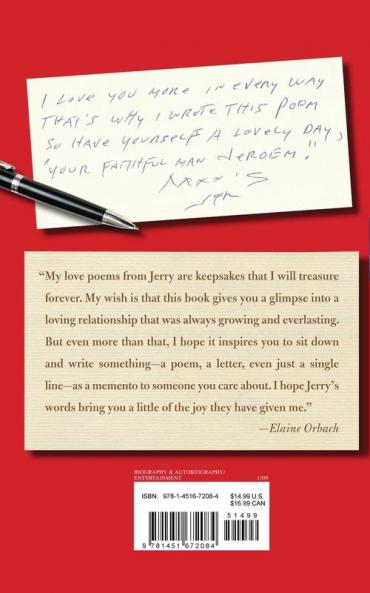 I LOVE YOU MORE IN EVERY WAY
THAT'S WHY I WROTE THIS POEM
SO HAVE YOURSELF A LOVELY DAY,
"YOUR FAITHFUL MAN JEROEM."
XXXX'S
“My love poems from Jerry are keepsakes that I will treasure
forever. My wish is that this book gives you a glimpse into a
loving relationship that was always growing and everlasting.
But even more than that, I hope it inspires you to sit down
and write something—a poem, a letter, even just a single
line—as a memento to someone you care about. I hope Jerry’s
words bring you a little of the joy they have given me.”
—Elaine Orbach
BIOGRAPHY & AUTOBIOGRAPHY/
ENTERTAINMENT 1109
ISBN: 978-1-4516-7208-4
$14.99 U.S.
$16.99 CAN
51499
9 781451 672084